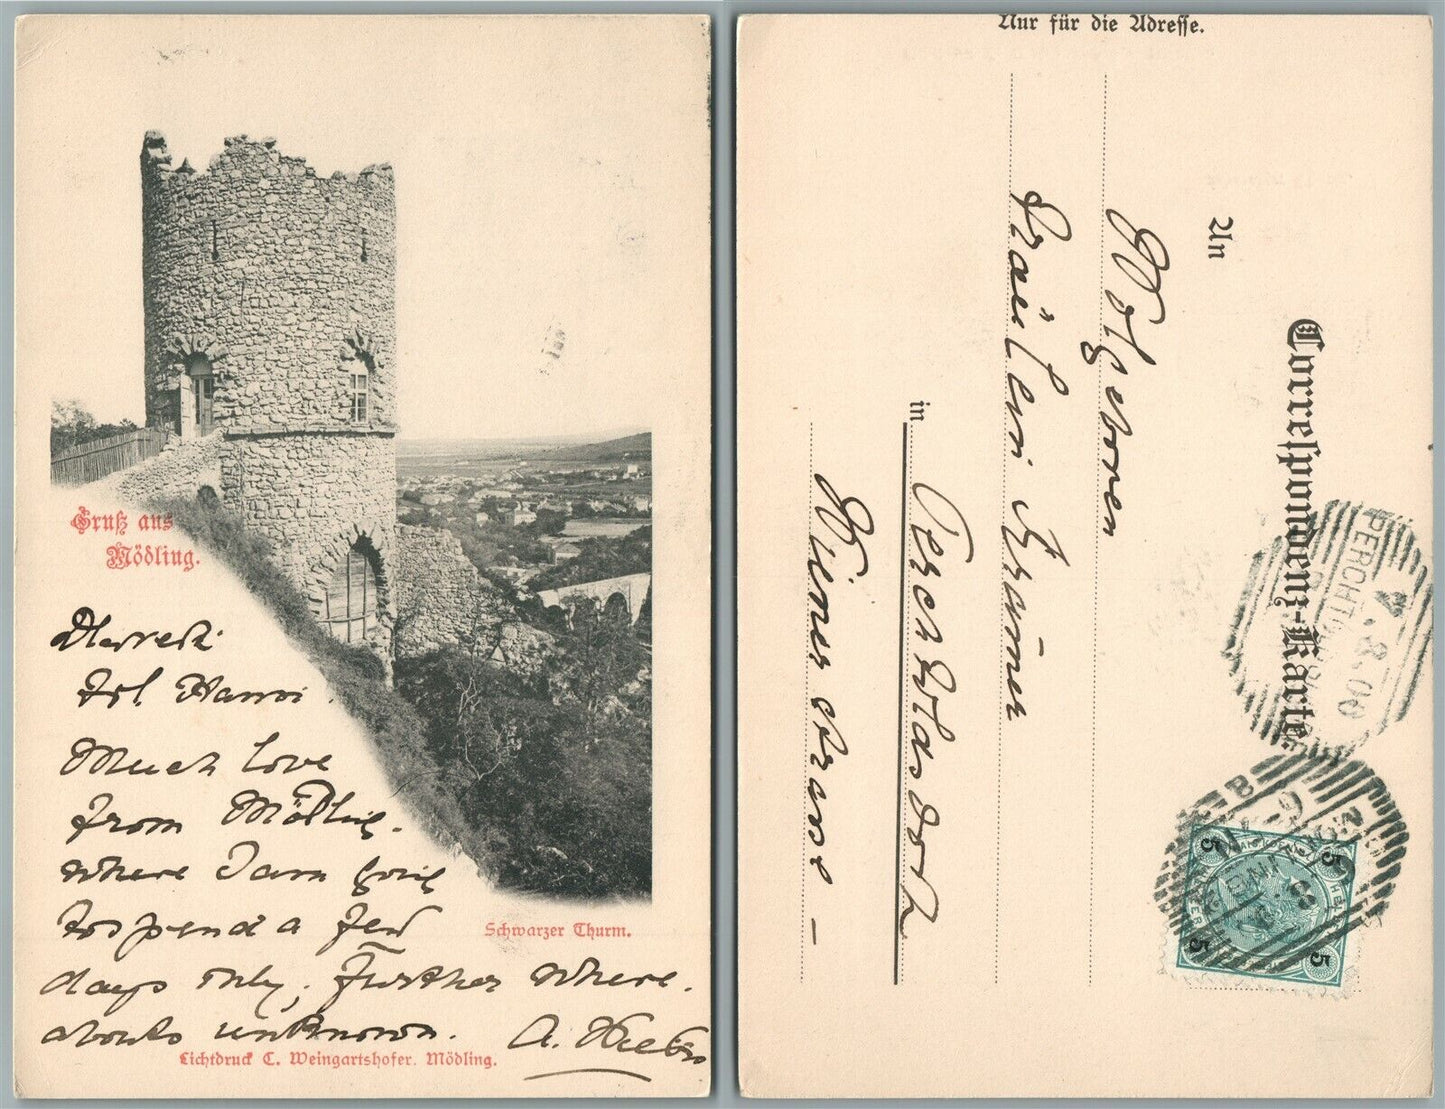 Gruß aus
Mödling.
Frl. Hansi.
Much love
from Mödling.
where I am going
to spend a few
days only, further where.
abouts unknown.
A.
Schwarzer Thurm.
Lichtdruck C. Weingartshofer. Mödling.
Nur für die Adresse.
Correspondenz-Karte.
An
Wohlgeboren
Fräulein
in
Perchtholdsdorf
PERCHT
7.8.00
5
5
5
5